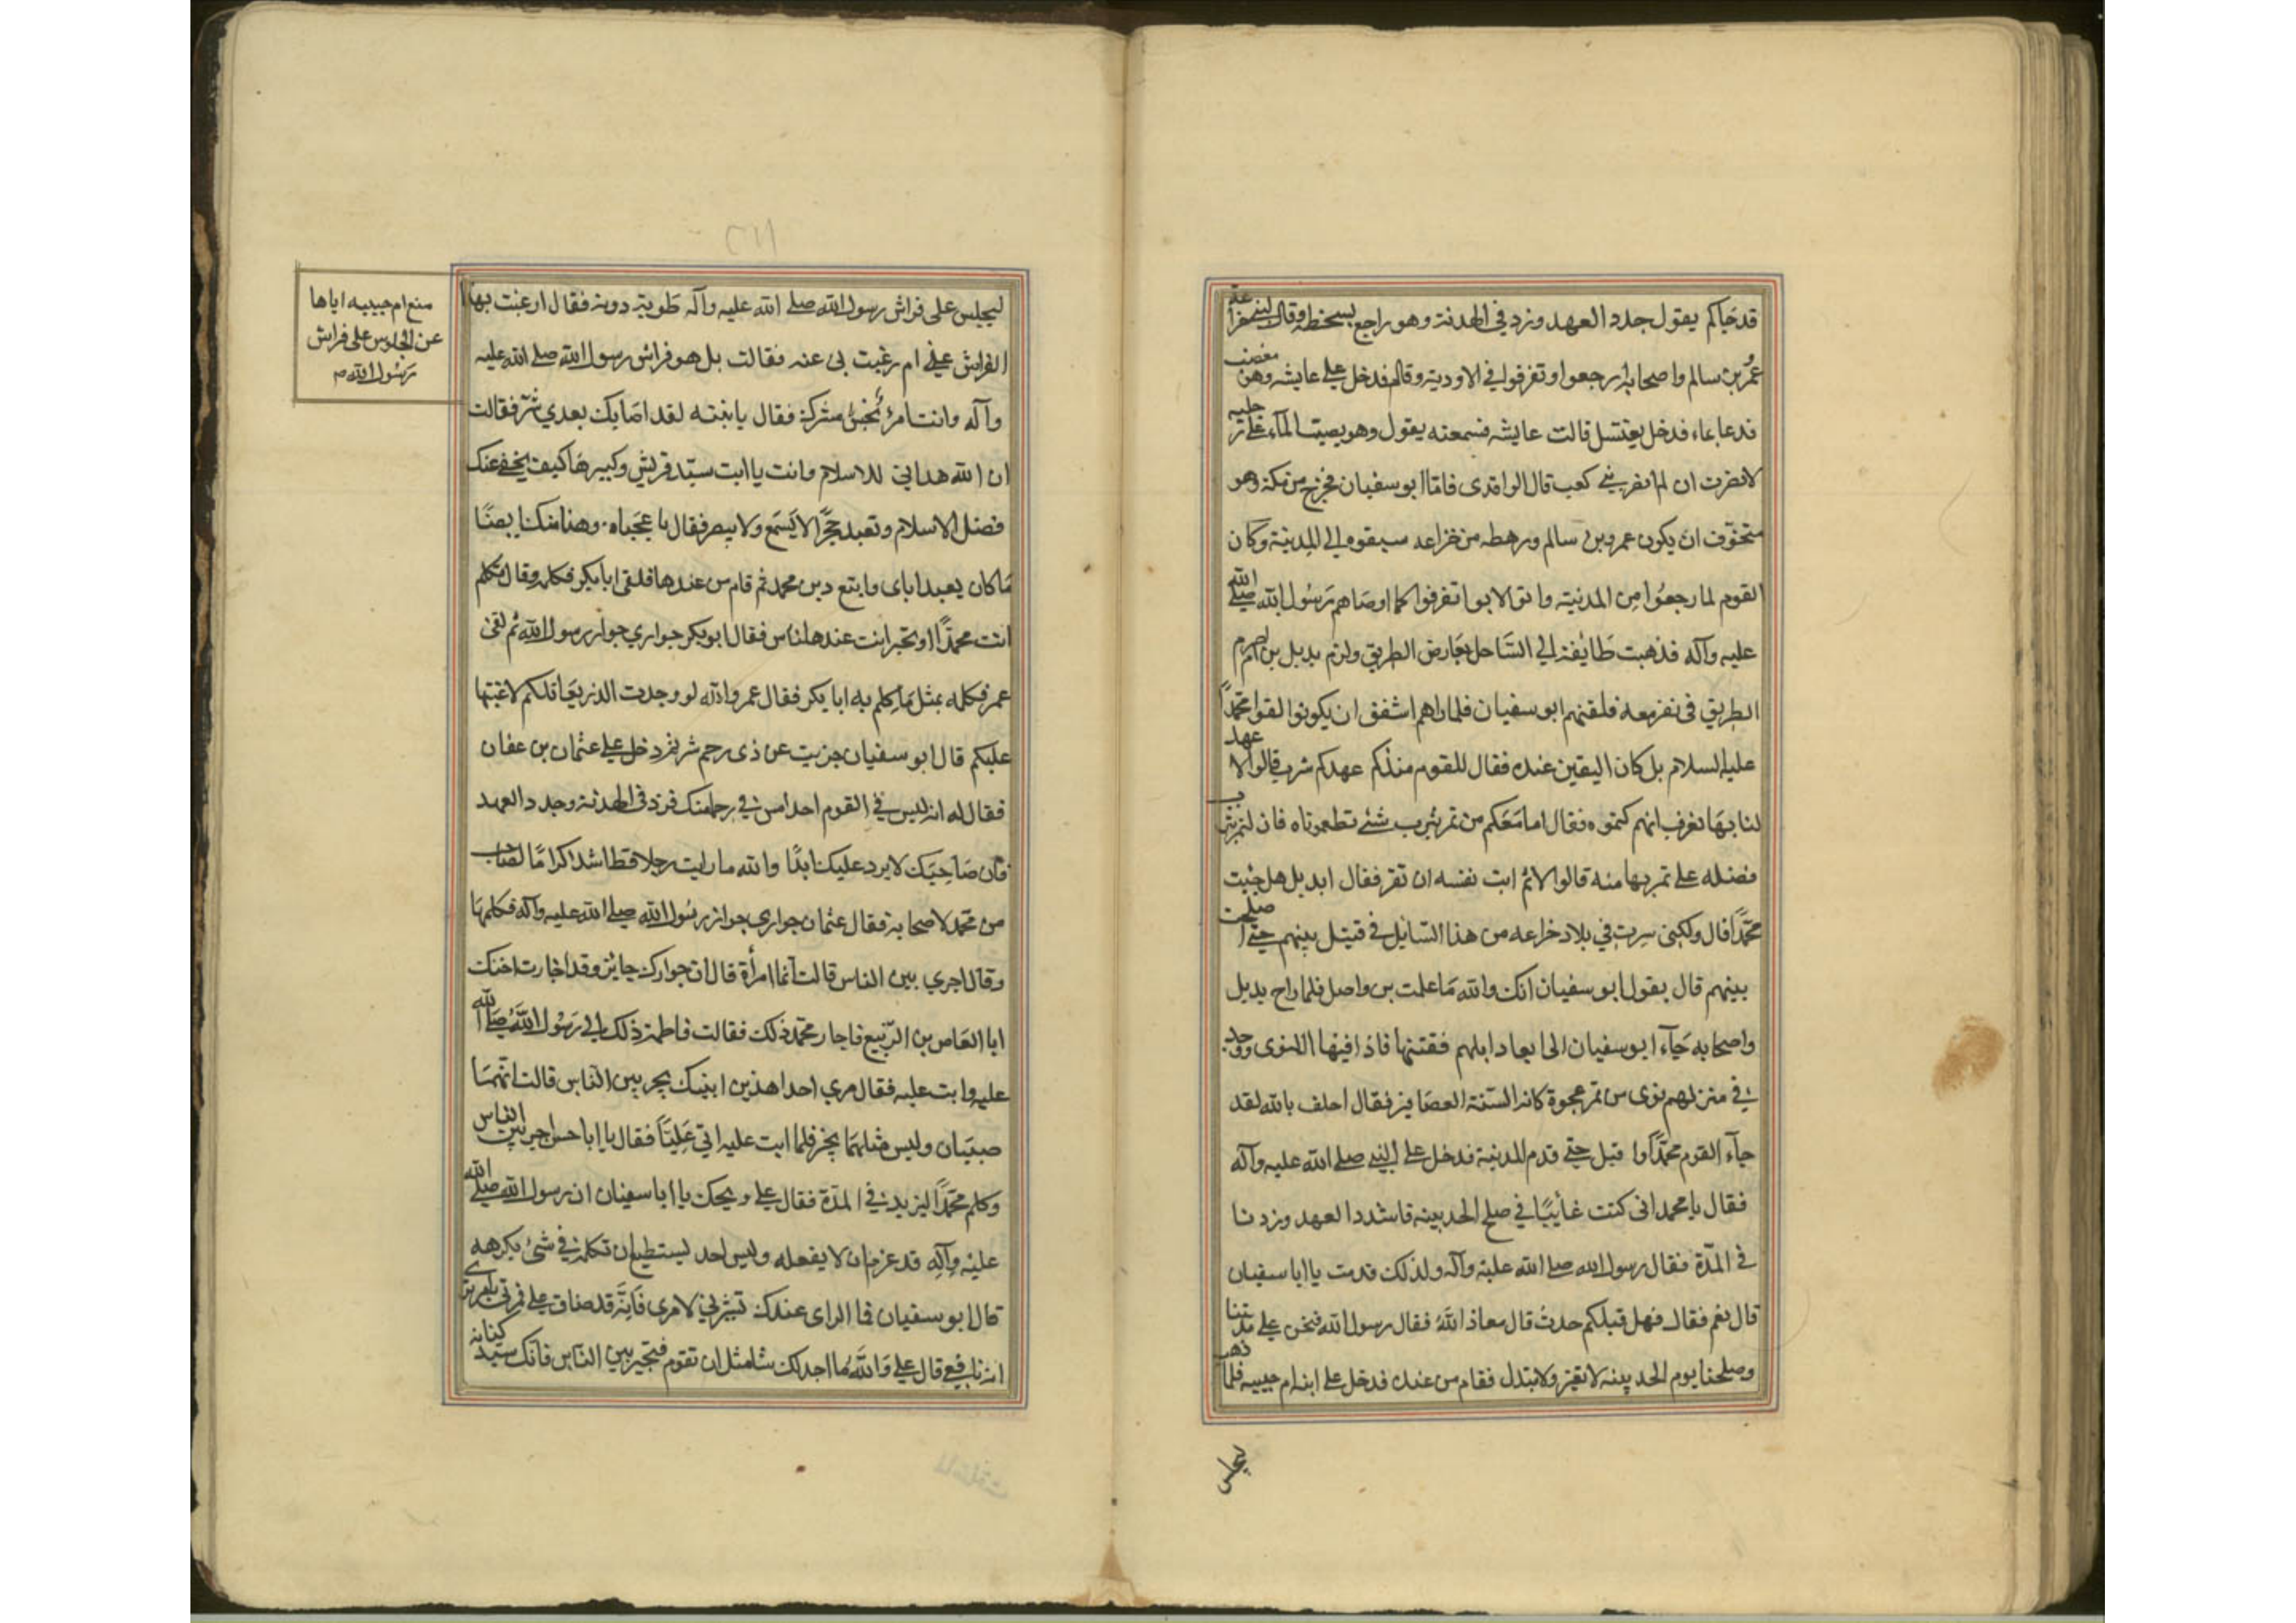 قد جاكم يقول جدد العهد وزد في الهدنة وهو راجع بسخطه وقال لبني
عمرو بن سالم واصحابه ارجعوا وتفرقوا في الاودية وقام فدخل علي عايشه وهو مغضب
فدعا بماء فدخل يغتسل قالت عايشه فسمعته يقول وهو يصب الماء علي رجليه
لا نصرت ان لم انصر بني كعب قال الواقدى فاما ابو سفيان فخرج من مكة وهو
متخوّف ان يكون عمرو بن سالم ورهطه من خزاعه سبقوه الي المدينة وكان
القوم لما رجعوا من المدنية واتو الابوا تفرقوا كما اوصاهم رسول الله صلي الله
عليه وآله فذهبت طايفة الي الساحل بعارض الطريق ولزم بديل بن اصرم
الطريق في نفر معه فلقيهم ابو سفيان فلما راهم اشفق ان يكونوا لقوا محمداً
عليه السلام بل كان اليقين عنده فقال للقوم منذكم عهدكم بيثرب قالوا لا عهد
لنا بها فعرف انهم كتموه فقال اما معكم من تمر يثرب شئ تطعموناه فان لتمر يثرب
فضله علي تمر بها منه قالوا لا ثم ابت نفسه ان تقر فقال ابديل هل جئت
محمّداً قال ولكني سرت في بلاد خزاعه من هذا السّايل في قتيل بينهم حتي اصلحت
بينهم قال يقول ابو سفيان انك والله ما علمت بر واصل فلما راح بديل
واصحابه جآء ابو سفيان الى ابعار ابلهم ففتتها فاذا فيها النوى ووجد
في منزلهم نوى من تمر عجوة كانه السنة العصافير فقال احلف بالله لقد
جآء القوم محمّداً واقبل حتي قدم المدينة فدخل علي النبي صلي الله عليه وآله
فقال يا محمد انى كنت غائبًا في صلح الحديبيه فاشدد العهد وزدنا
في المدّة فقال رسول الله صلي الله عليه وآله ولذلك قدمت يا ابا سفيان
قال نعم فقال فهل قبلكم حدث قال معاذ اللّٰه فقال رسول الله فنحن علي مدتنا
وصلحنا يوم الحديبيه لا نغير ولا نبدل فقام من عنده فدخل علي ابنه ام حبيبه فلما ذهب
ليجلس
ليجلس على فراش رسول الله صلي الله عليه وآله طويته دونه فقال ارغبت بهذا
الفراش عني ام رغبت بى عنه فقالت بل هو فراش رسول الله صلي الله عليه
وآله وانت امرؤ نجس مشرك فقال يا بنيه لقد اصابك بعدي شر فقالت
ان الله هداني للاسلام وانت يا ابت سيّد قريش وكبيرها كيف يخفي عنك
فضل الاسلام وتعبد حجرًا لا يسمع ولا يبصر فقال يا عجباه وهذا منك ايضًا
ما كان يعبد اباى واتبع دين محمد ثم قام من عندها فلقى ابا بكر فكلمه وقال تكلم
انت محمدًا او تجير انت عند هالناس فقال ابو بكر جواري جوار رسول الله ثم لقى
عمر فكلمه بمثل ما كلم به ابا بكر فقال عمر والله لو وجدت الذر يقاتلكم لاعنتها
عليكم قال ابو سفيان جزيت عن ذى رحم شر ثم دخل علي عثمان بن عفان
فقال له انه ليس في القوم احد امس بي رحما منك فزد في الهدنة وجدد العهد
فان صاحبك لا يرد عليك ابدًا والله ما رايت رجلا قط اشد اكرامًا لصاحب
من محمّد لاصحابه فقال عثمان جواري جوار رسول الله صلي الله عليه وآله فكلمها
وقال اجيري بين الناس قالت انما امرأة قال ان جوارك جايز وقد اجارت اختك
ابا العاص بن الربيع فاجار محمد ذلك فقالت فاطمة ذلك الي رسول الله صلي الله
عليه وابت عليه فقال مري احد هذين ابنيك يجير بين الناس قالت انهما
صبيان وليس مثلهما يجير فلما ابت عليه اتي عليّاً فقال يا ابا حسن اجر بين الناس
وكلم محمّداً ليزيد في المدّة فقال علي ويحك يا ابا سفيان ان رسول الله صلي الله
عليه وآله قد عزم ان لا يفعله وليس احد يستطيع ان تكلمه في شئ يكرهه
قال ابو سفيان فما الراى عندك تشير لي لامري فانّه قد ضاق علي فمرني بامر ترى
انه نافعي قال علي والله ما اجد لك شيئا مثل ان تقوم فتجير بين الناس فانك سيد كنانه
منع ام حبيبه اباها
عن الجلوس على فراش
رسول الله ص